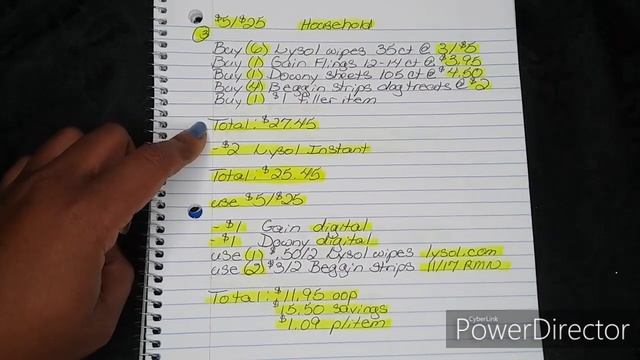 $5/$25 Household
3
Buy (6) Lysol wipes 35ct @ 3/$5
Buy (1) Gain Flings 12-14 ct @ $3.95
Buy (1) Downy sheets 105 ct @ $4.50
Buy (4) Beggin strips dog treats @ $2
Buy (1) $1 filler item
Total: $27.45
-$2 Lysol Instant
Total: $25.45
use $5/$25
-$1 Gain digital
-$1 Downy digital
use (1) $.50/2 Lysol wipes lysol.com
use (2) $3/2 Beggin strips 11/17 RMN
Total: $11.95 oop
$15.50 savings
$1.09 p/item
CyberLink
PowerDirector